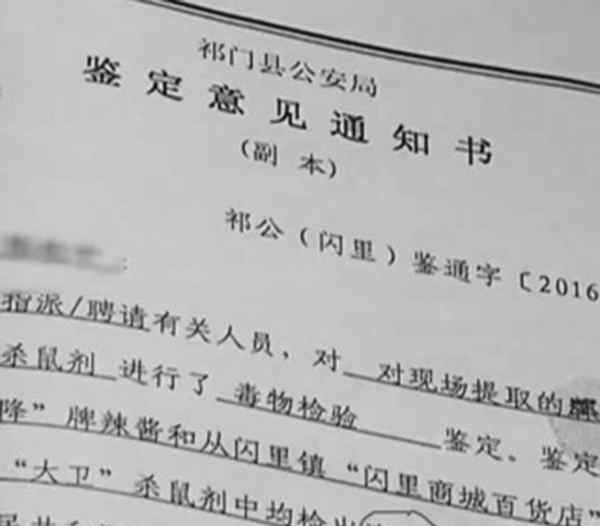 祁门县公安局
鉴定意见通知书
(副 本)
祁公(闪里)鉴通字〔2016
:
指派/聘请有关人员,对 对现场提取的
杀鼠剂 进行了 毒物检验 鉴定。鉴定
降”牌辣酱和从闪里镇“闪里商城百货店”
“大卫”杀鼠剂中均检出